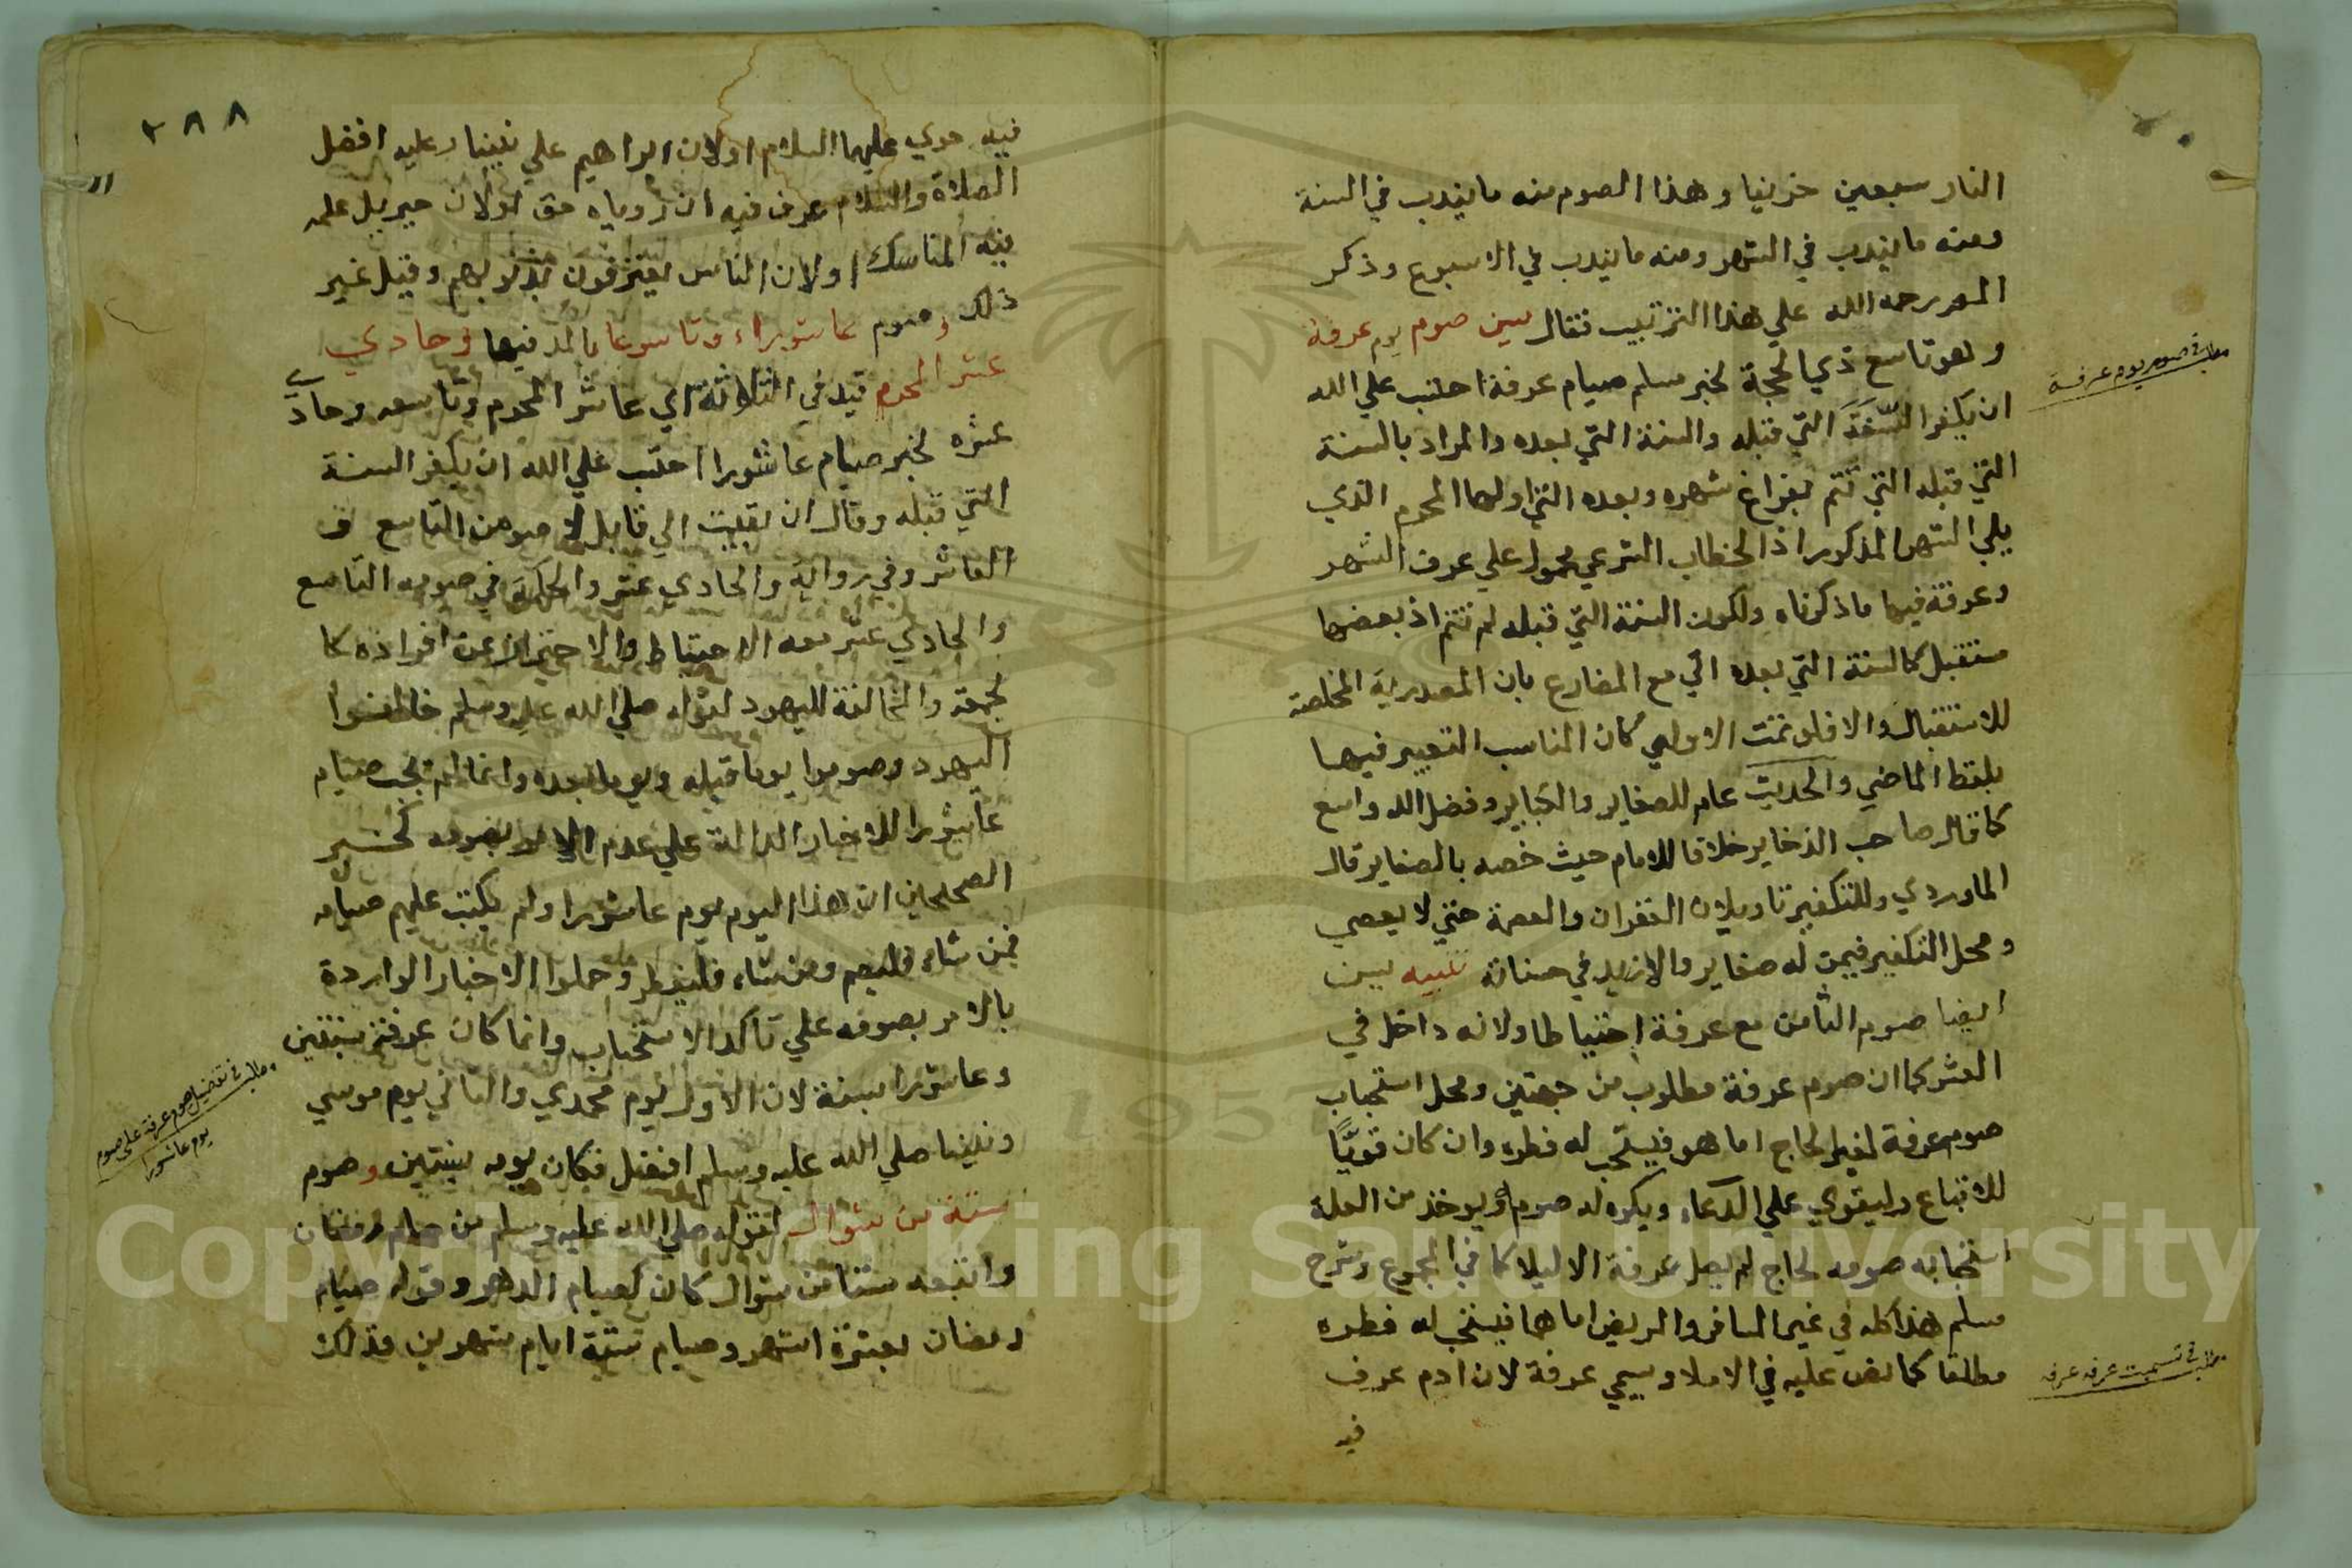 النار سبعين خريفا وهذا الصوم منه ما يندب في السنة
ومنه ما يندب في الشهر ومنه ما يندب في الاسبوع وذكر
المص رحمه الله علي هذا الترتيب فقال يسن صوم يوم عرفة
وهو تاسع ذي الحجة لخبر مسلم صيام عرفة احتسب علي الله
ان يكفر السنة التي قبله والسنة التي بعده والمراد بالسنة
التي قبله التي تتم بفراغ شهره وبعده التي اولها المحرم الذي
يلي الشهر المذكور اذ الخطاب الشرعي محمول علي عرف الشهر
وعرفة فيها ما ذكرناه ولكون السنة التي قبله لم تتم اذ بعضها
مستقبل كالسنة التي بعده اتي مع المضارع بان المصدرية المخلصة
للاستقبال والا فلو تمت الاولي كان المناسب التعبير فيها
بلفظ الماضي والحديث عام للصغاير والكباير وفضل الله واسع
كما قال صاحب الذخاير خلافا للامام حيث خصه بالصغاير قال
الماوردي وللتكفير تاويلان الغفران والعصمة حتي لا يعصي
ومحل التكفير فيمن له صغاير والا زيد في حسناته تنبيه يسن
ايضا صوم الثامن مع عرفة احتياطا ولانه داخل في
العشر كما ان صوم عرفة مطلوب من جهتين ومحل استحباب
صوم عرفة لغير الحاج اما هو فيستحب له فطره وان كان قويًّا
للاتباع وليقوي علي الدعاء ويكره له صومه ويوخذ من العلة
استحبابه صومه لحاج لم يصل عرفة الا ليلا كما في المجموع وشرح
مسلم هذا كله في غير المسافر والمريض اما هما فيستحب له فطره
مطلقا كما نص عليه في الاملا وسمي عرفة لان ادم عرف
فيه
مطلب في صوم يوم عرفة
مطلب في تسميت عرفه عرفه
٢٨٨
فيه حوي عليهما السلام او لان ابراهيم علي نبينا وعليه افضل
الصلاة والسلام عرف فيه ان روياه حق او لان جبريل علمه
فيه المناسك او لان الناس يعترفون بذنوبهم وقيل غير
ذلك وصوم عاشوراء وتاسوعا بالمد فيها وحادي
عشر المحرم قيد في الثلاثة اي عاشر المحرم وتاسعه وحادي
عشره لخبر صيام عاشورا احتسب علي الله ان يكفر السنة
التي قبله وقال ان بقيت الي قابل لا صومن التاسع و
العاشر وفي رواية والحادي عشر والحكمة في صومه التاسع
والحادي عشر معه الاحتياط والاحتراز عن افراده كا
لجمعة والمخالفة لليهود لقوله صلي الله عليه وسلم خالفوا
اليهود وصوموا يوما قبله ويوما بعده وانما لم يجب صيام
عاشورا للاخبار الدالة علي عدم الامر بصومه كخبر
الصحيحين ان هذا اليوم يوم عاشورا ولم يكتب عليهم صيامه
فمن شاء فليصم ومن شاء فليفطر وحملوا الاخبار الواردة
بالامر بصومه علي تاكد الاستحباب وانما كان عرفة بسنتين
وعاشورا بسنة لان الاول يوم محمدي والثاني يوم موسي
ونبينا صلي الله عليه وسلم افضل فكان يومه بسنتين وصوم
ستة من شوال لقوله صلي الله عليه وسلم من صام رمضان
واتبعه ستا من شوال كان كصيام الدهر وقوله صيام
رمضان بعشرة اشهر وصيام ستة ايام شهرين فذلك
مطلب في تفضيل صوم عرفة علي صوم
يوم عاشورا
Copyright © King Saud University
1957